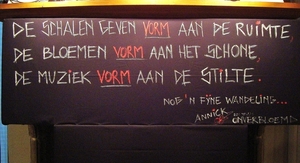 DE SCHALEN GEVEN VORM AAN DE RUIMTE,
DE BLOEMEN VORM AAN HET SCHONE,
DE MUZIEK VORM AAN DE STILTE.
NOG 'N FIJNE WANDELING...
ANNICK
ONVERBLOEMD